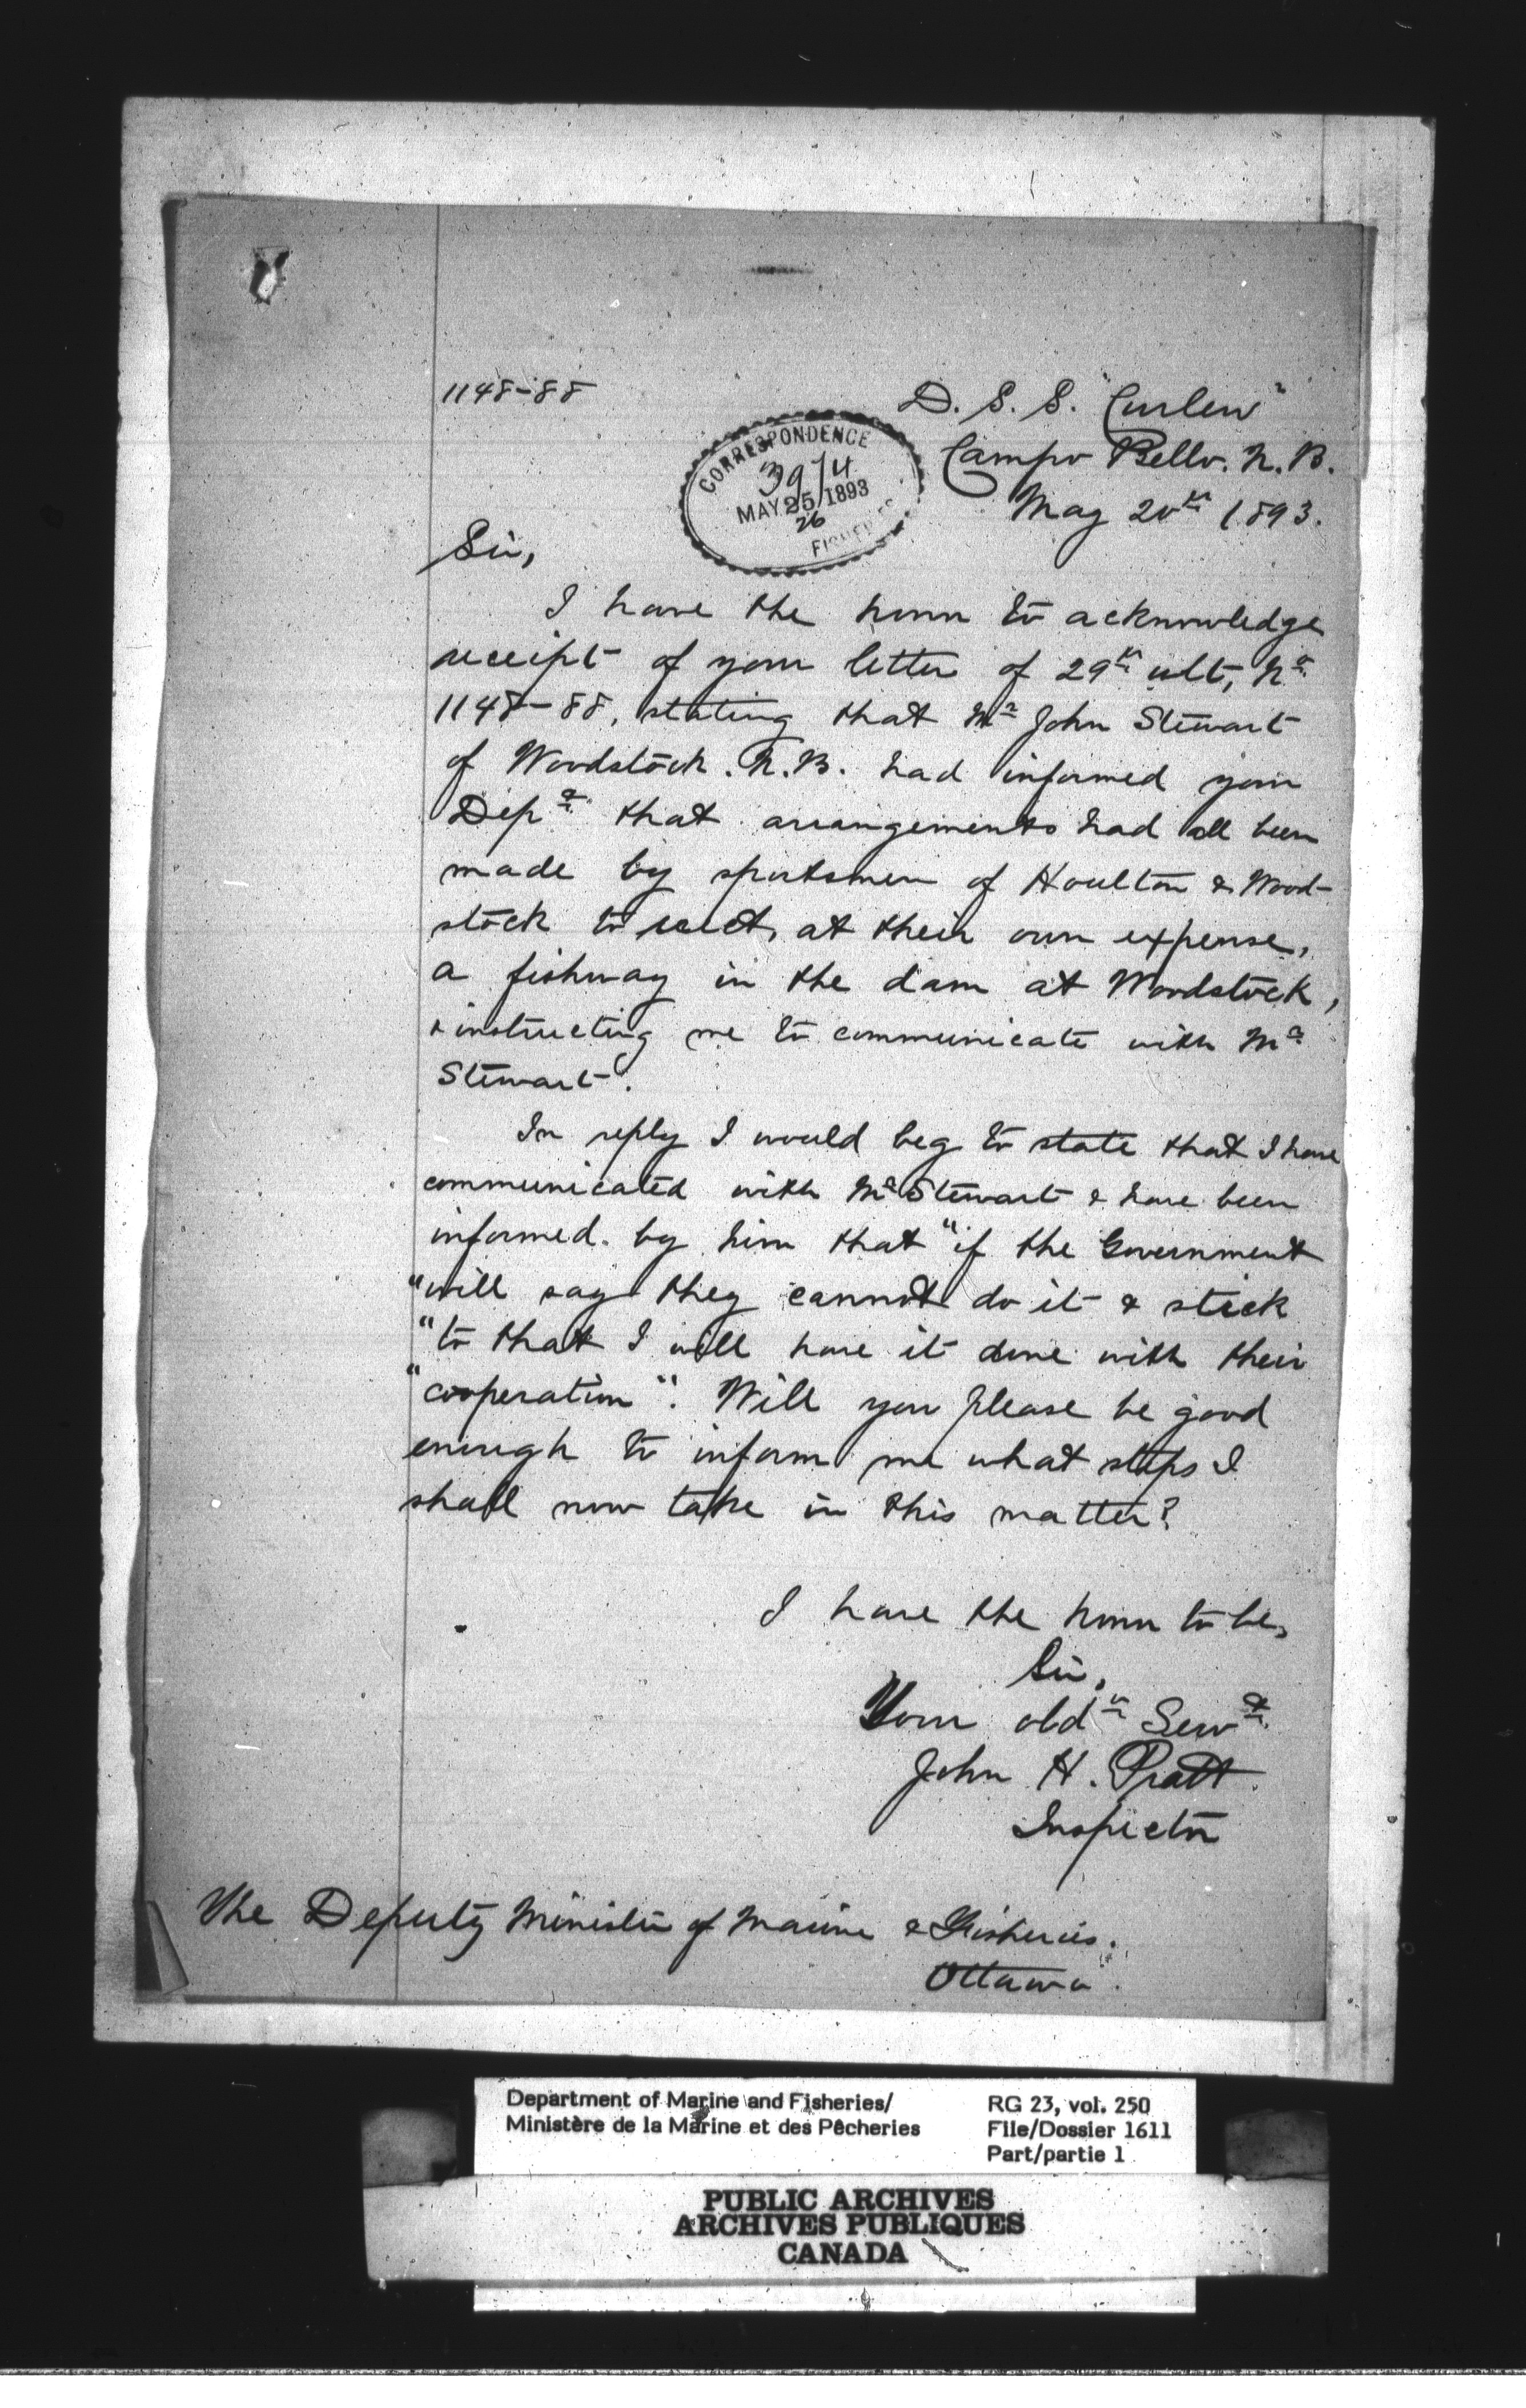 1148-88
D. S. S. "Curlew"
Campo Bello. N. B.
May 20th 1893.
CORRESPONDENCE
3974
MAY 25 1893
26
FISHERIES
Sir,
I have the honor to acknowledge
receipt of your letter of 29th ult, No
1148-88, stating that Mr John Stewart
of Woodstock. N.B. had informed your
Dept. that arrangements had all been
made by sportsmen of Houlton & Wood-
stock to erect, at their own expense,
a fishway in the dam at Woodstock,
& instructing me to communicate with Mr
Stewart.
In reply I would beg to state that I have
communicated with Mr Stewart & have been
informed by him that "if the Government
"will say they cannot do it & stick
"to that I will have it done with their
"cooperation". Will you please be good
enough to inform me what steps I
shall now take in this matter?
I have the honor to be,
Sir,
Your obdt Servt.
John H. Pratt
Inspector
The Deputy Minister of Marine & Fisheries.
Ottawa.
Department of Marine and Fisheries/
Ministère de la Marine et des Pêcheries
RG 23, vol. 250
File/Dossier 1611
Part/partie 1
PUBLIC ARCHIVES
ARCHIVES PUBLIQUES
CANADA